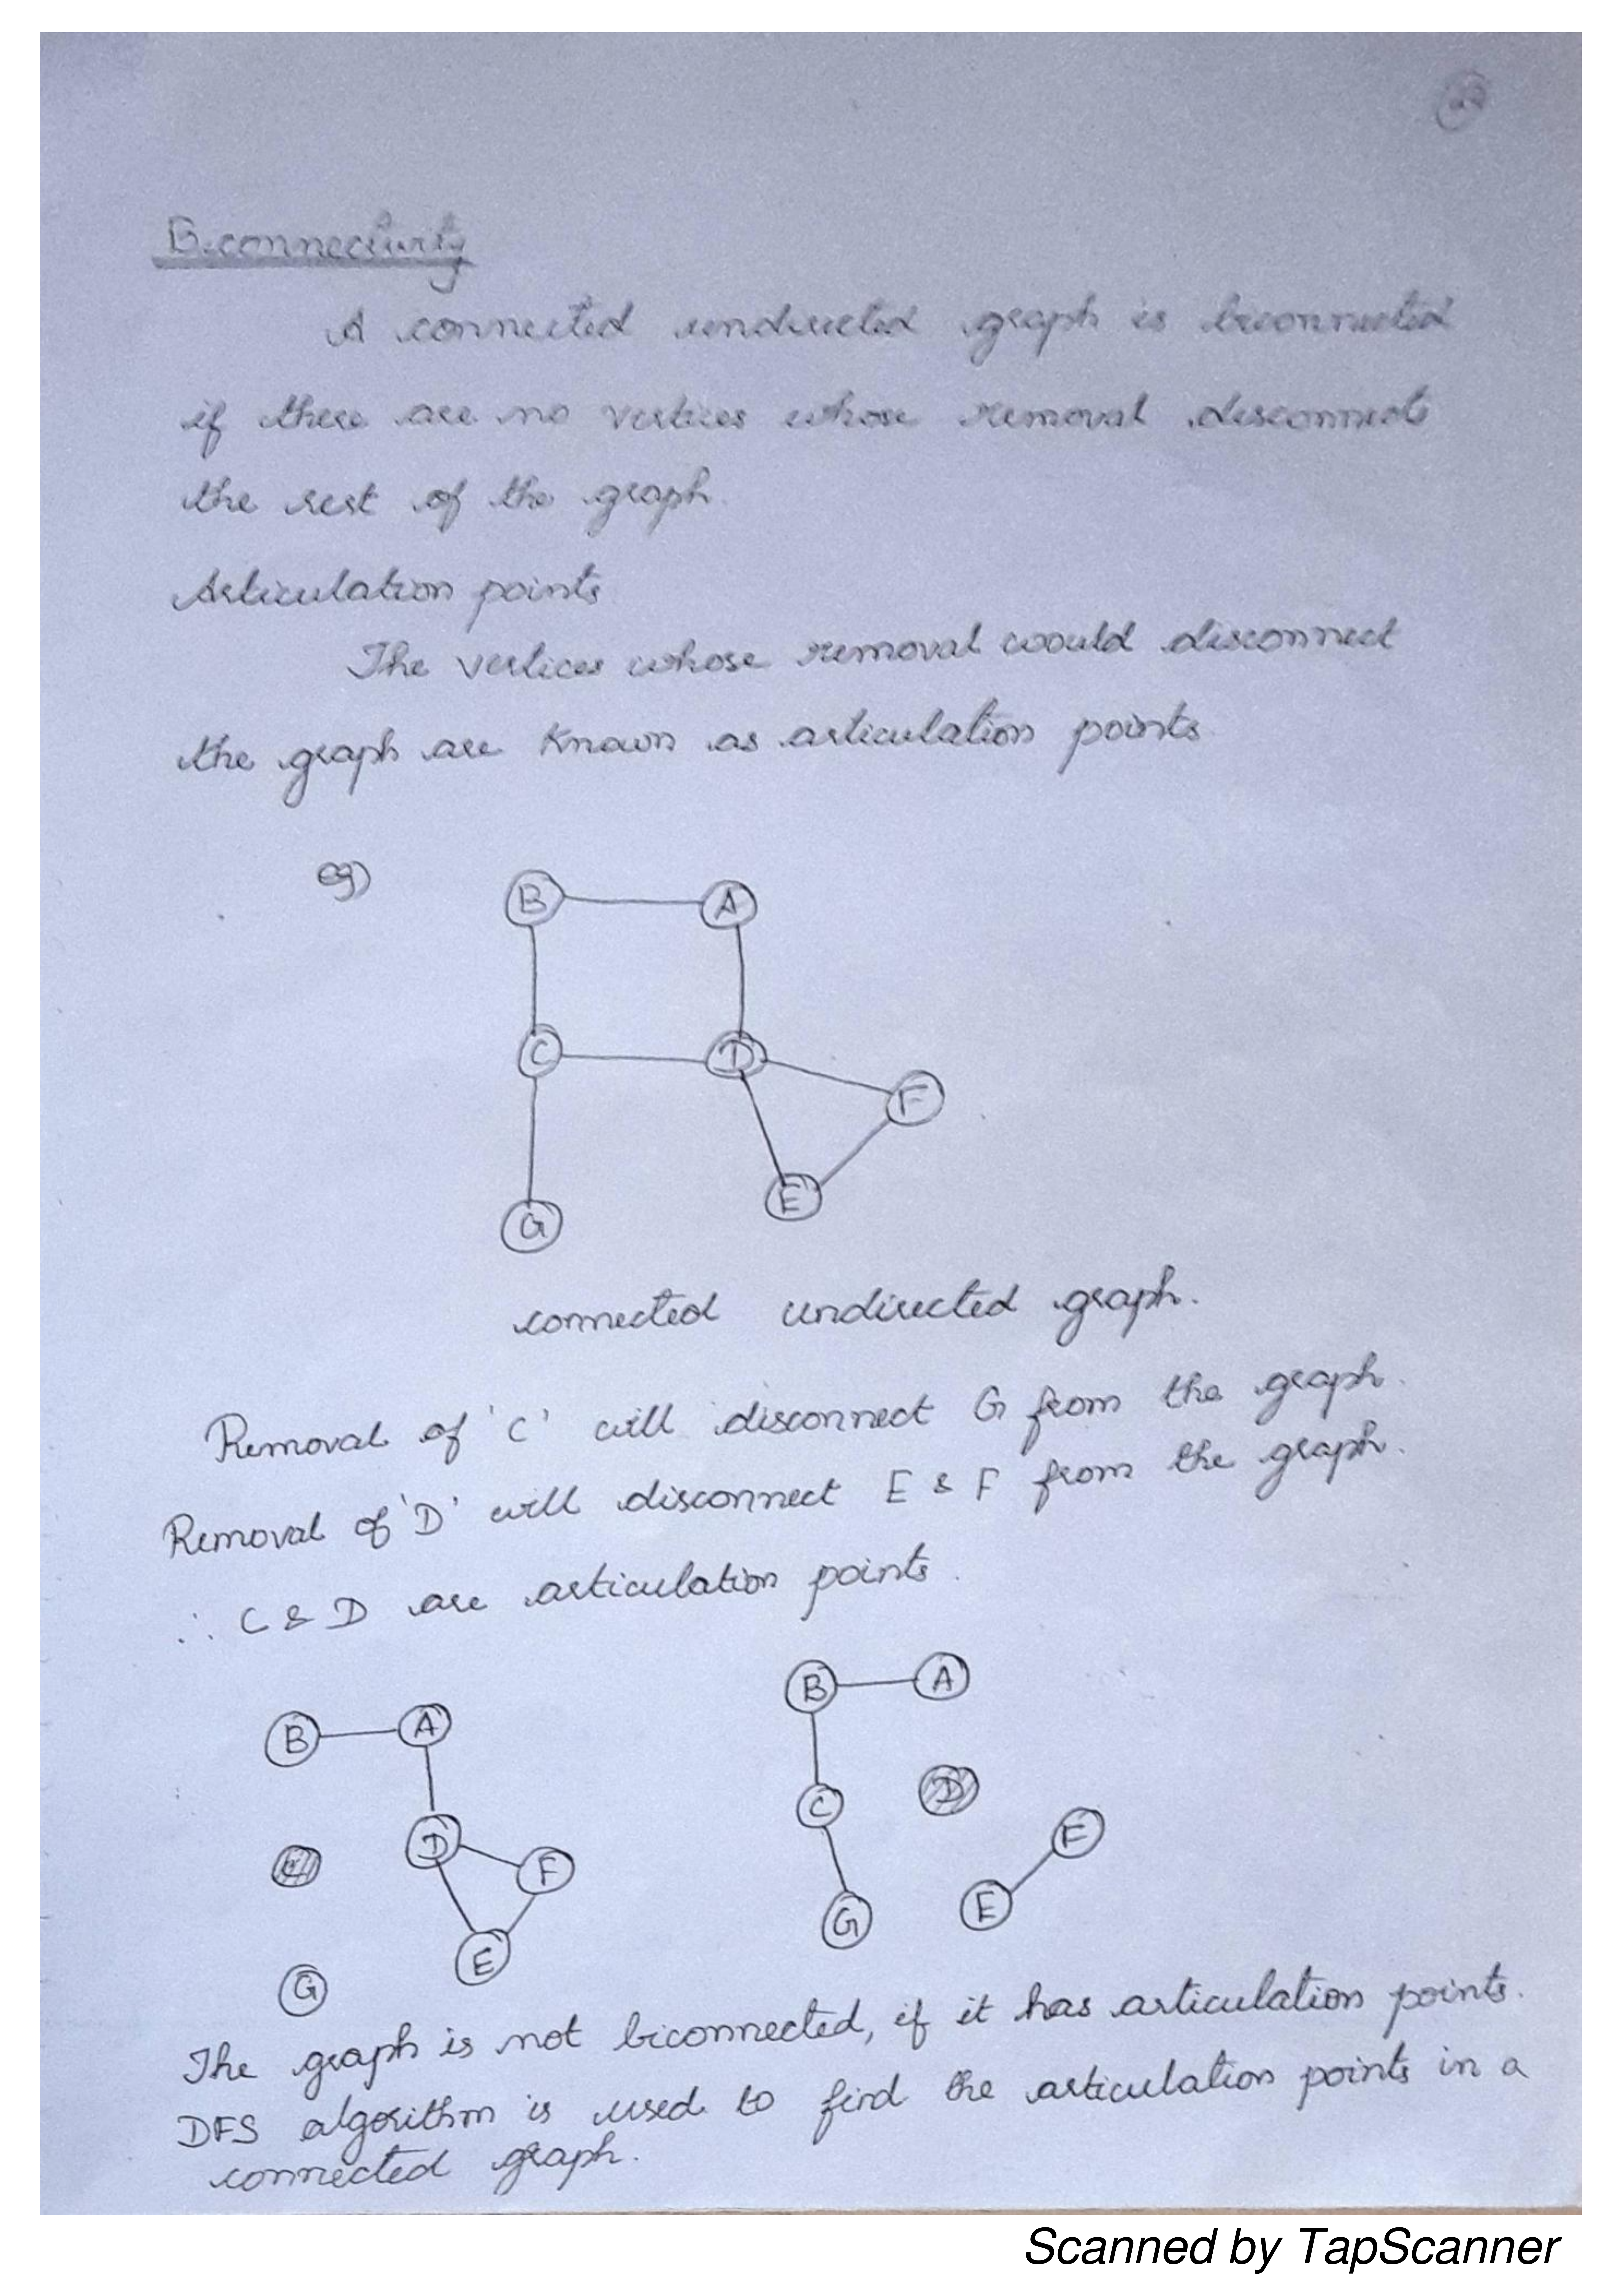 Biconnectivity
A connected undirected graph is biconnected
if there are no vertices whose removal disconnects
the rest of the graph.
Articulation points
The vertices whose removal would disconnect
the graph are known as articulation points.
eg)
B A
C D
F
E
G
connected undirected graph.
Removal of 'C' will disconnect G from the graph.
Removal of 'D' will disconnect E & F from the graph.
∴ C & D are articulation points.
B A
C D F
E
G
B A
C D
F
E
G
The graph is not biconnected, if it has articulation points.
DFS algorithm is used to find the articulation points in a
connected graph.
Scanned by TapScanner